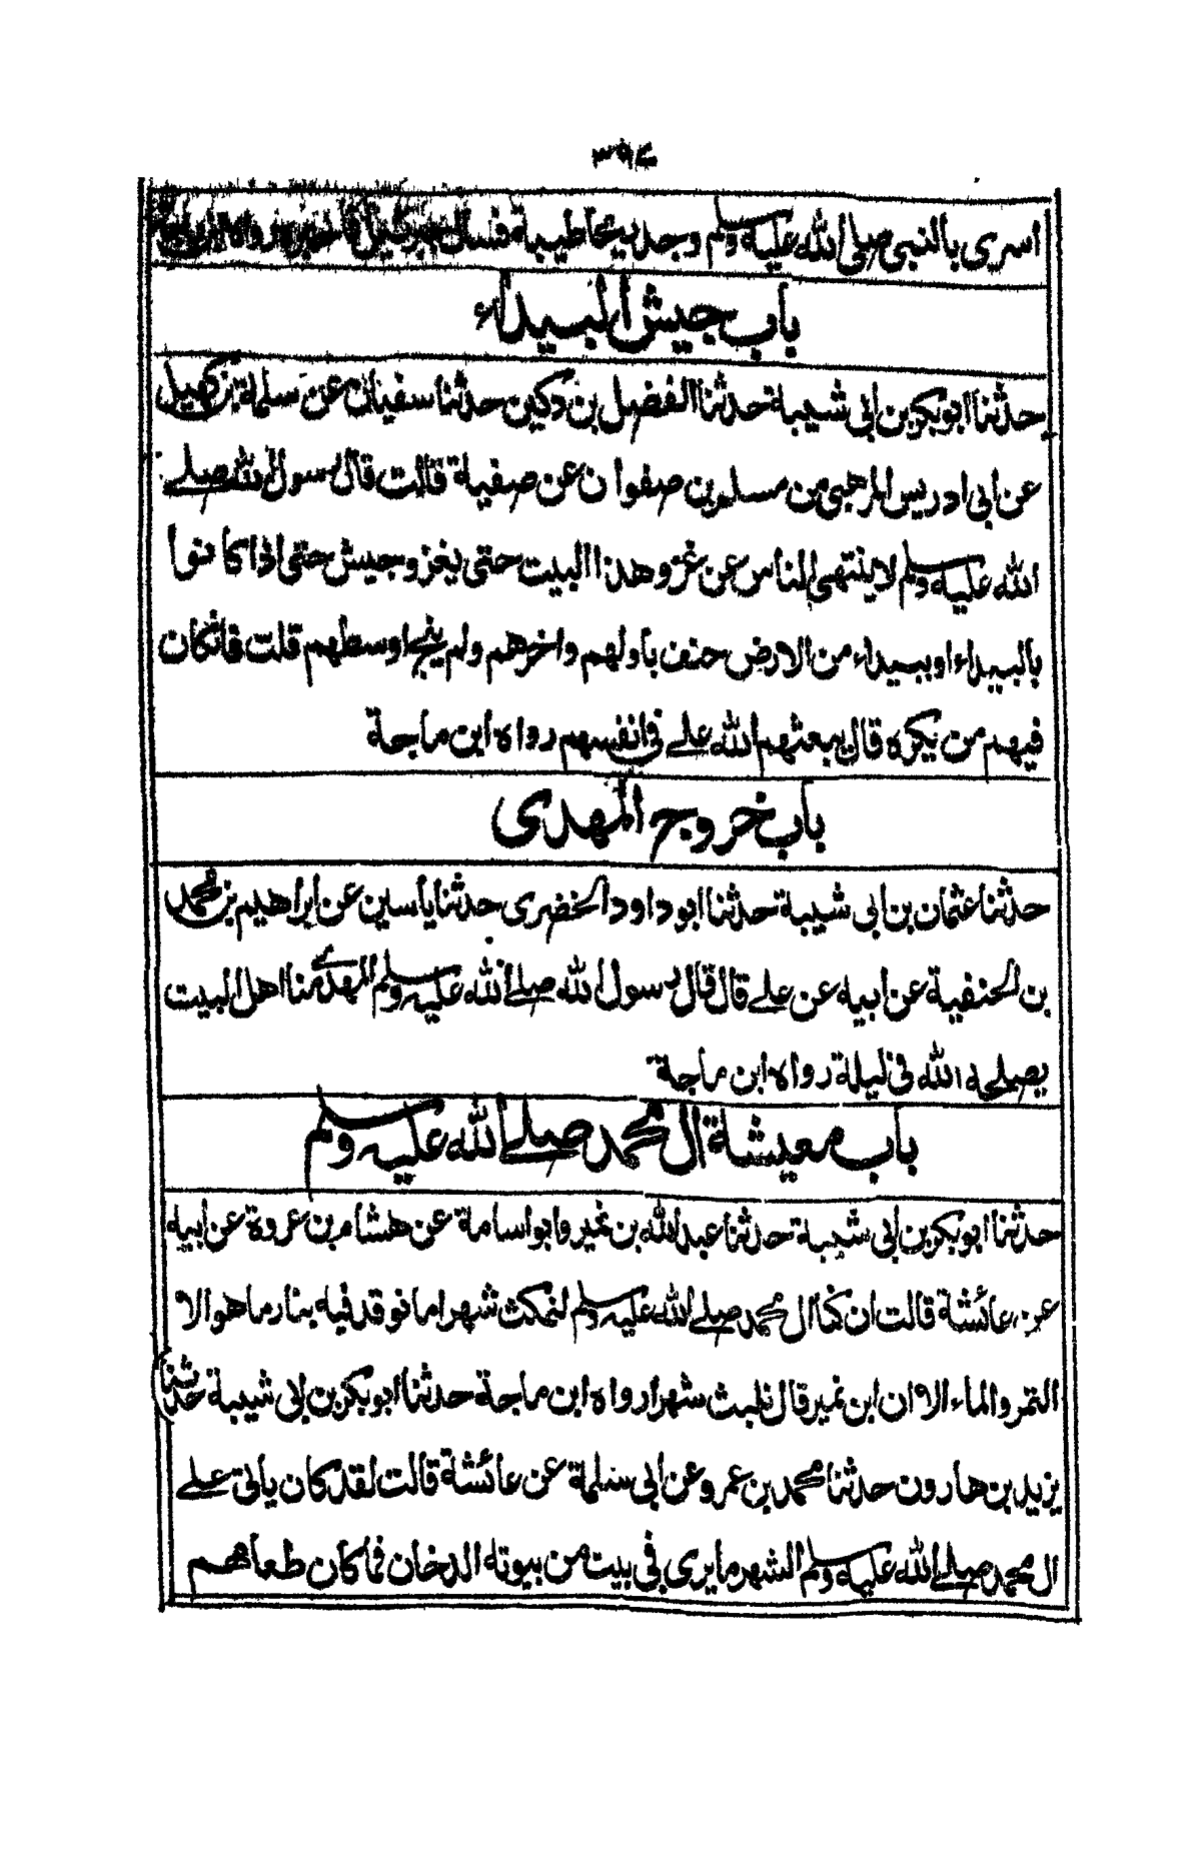 اسرى بالنبى صلى الله عليه وسلم وجد ريحا طيبة فسأل جبرئيل فاخبره رواه ابن ماجة
باب جيش البيداء
حدثنا ابو بكر بن ابى شيبة حدثنا الفضل بن دكين حدثنا سفيان عن سلمة بن كهيل
عن ابى ادريس المرهبى من مسلم بن صفوان عن صفية قالت قال رسول الله صلے
الله عليه وسلم لا ينتهى الناس عن غزو هذا البيت حتى يغزو جيش حتى اذا كانوا
بالبيداء او ببيداء من الارض خنف باولهم واخرهم ولم ينج اوسطهم قلت فان كان
فيهم من يكره قال يبعثهم الله علے فى انفسهم رواه ابن ماجة
باب خروج المهدى
حدثنا عثمان بن ابى شيبة حدثنا ابو داود الخضرى حدثنا ياسين عن ابراهيم بن محمد
بن الحنفية عن ابيه عن علے قال قال رسول الله صلے الله عليه وسلم المهدے منا اهل البيت
يصلحه الله فى ليلة رواه ابن ماجة
باب معيشة ال محمد صلے الله عليه وسلم
حدثنا ابو بكر بن ابى شيبة حدثنا عبد الله بن نمير وابو اسامة عن هشام بن عروة عن ابيه
عن عائشة قالت ان كنا ال محمد صلے الله عليه وسلم لنمكث شهرا ما نوقد فيه بنار ما هو الا
التمر والماء الا ان ابن نمير قال نلبث شهرا رواه ابن ماجة حدثنا ابو بكر بن ابى شيبة حدثنا
يزيد بن هارون حدثنا محمد بن عمرو عن ابى سلمة عن عائشة قالت لقد كان ياتى علے
ال محمد صلے الله عليه وسلم الشهر ما يرى فى بيت من بيوته الدخان فما كان طعامهم